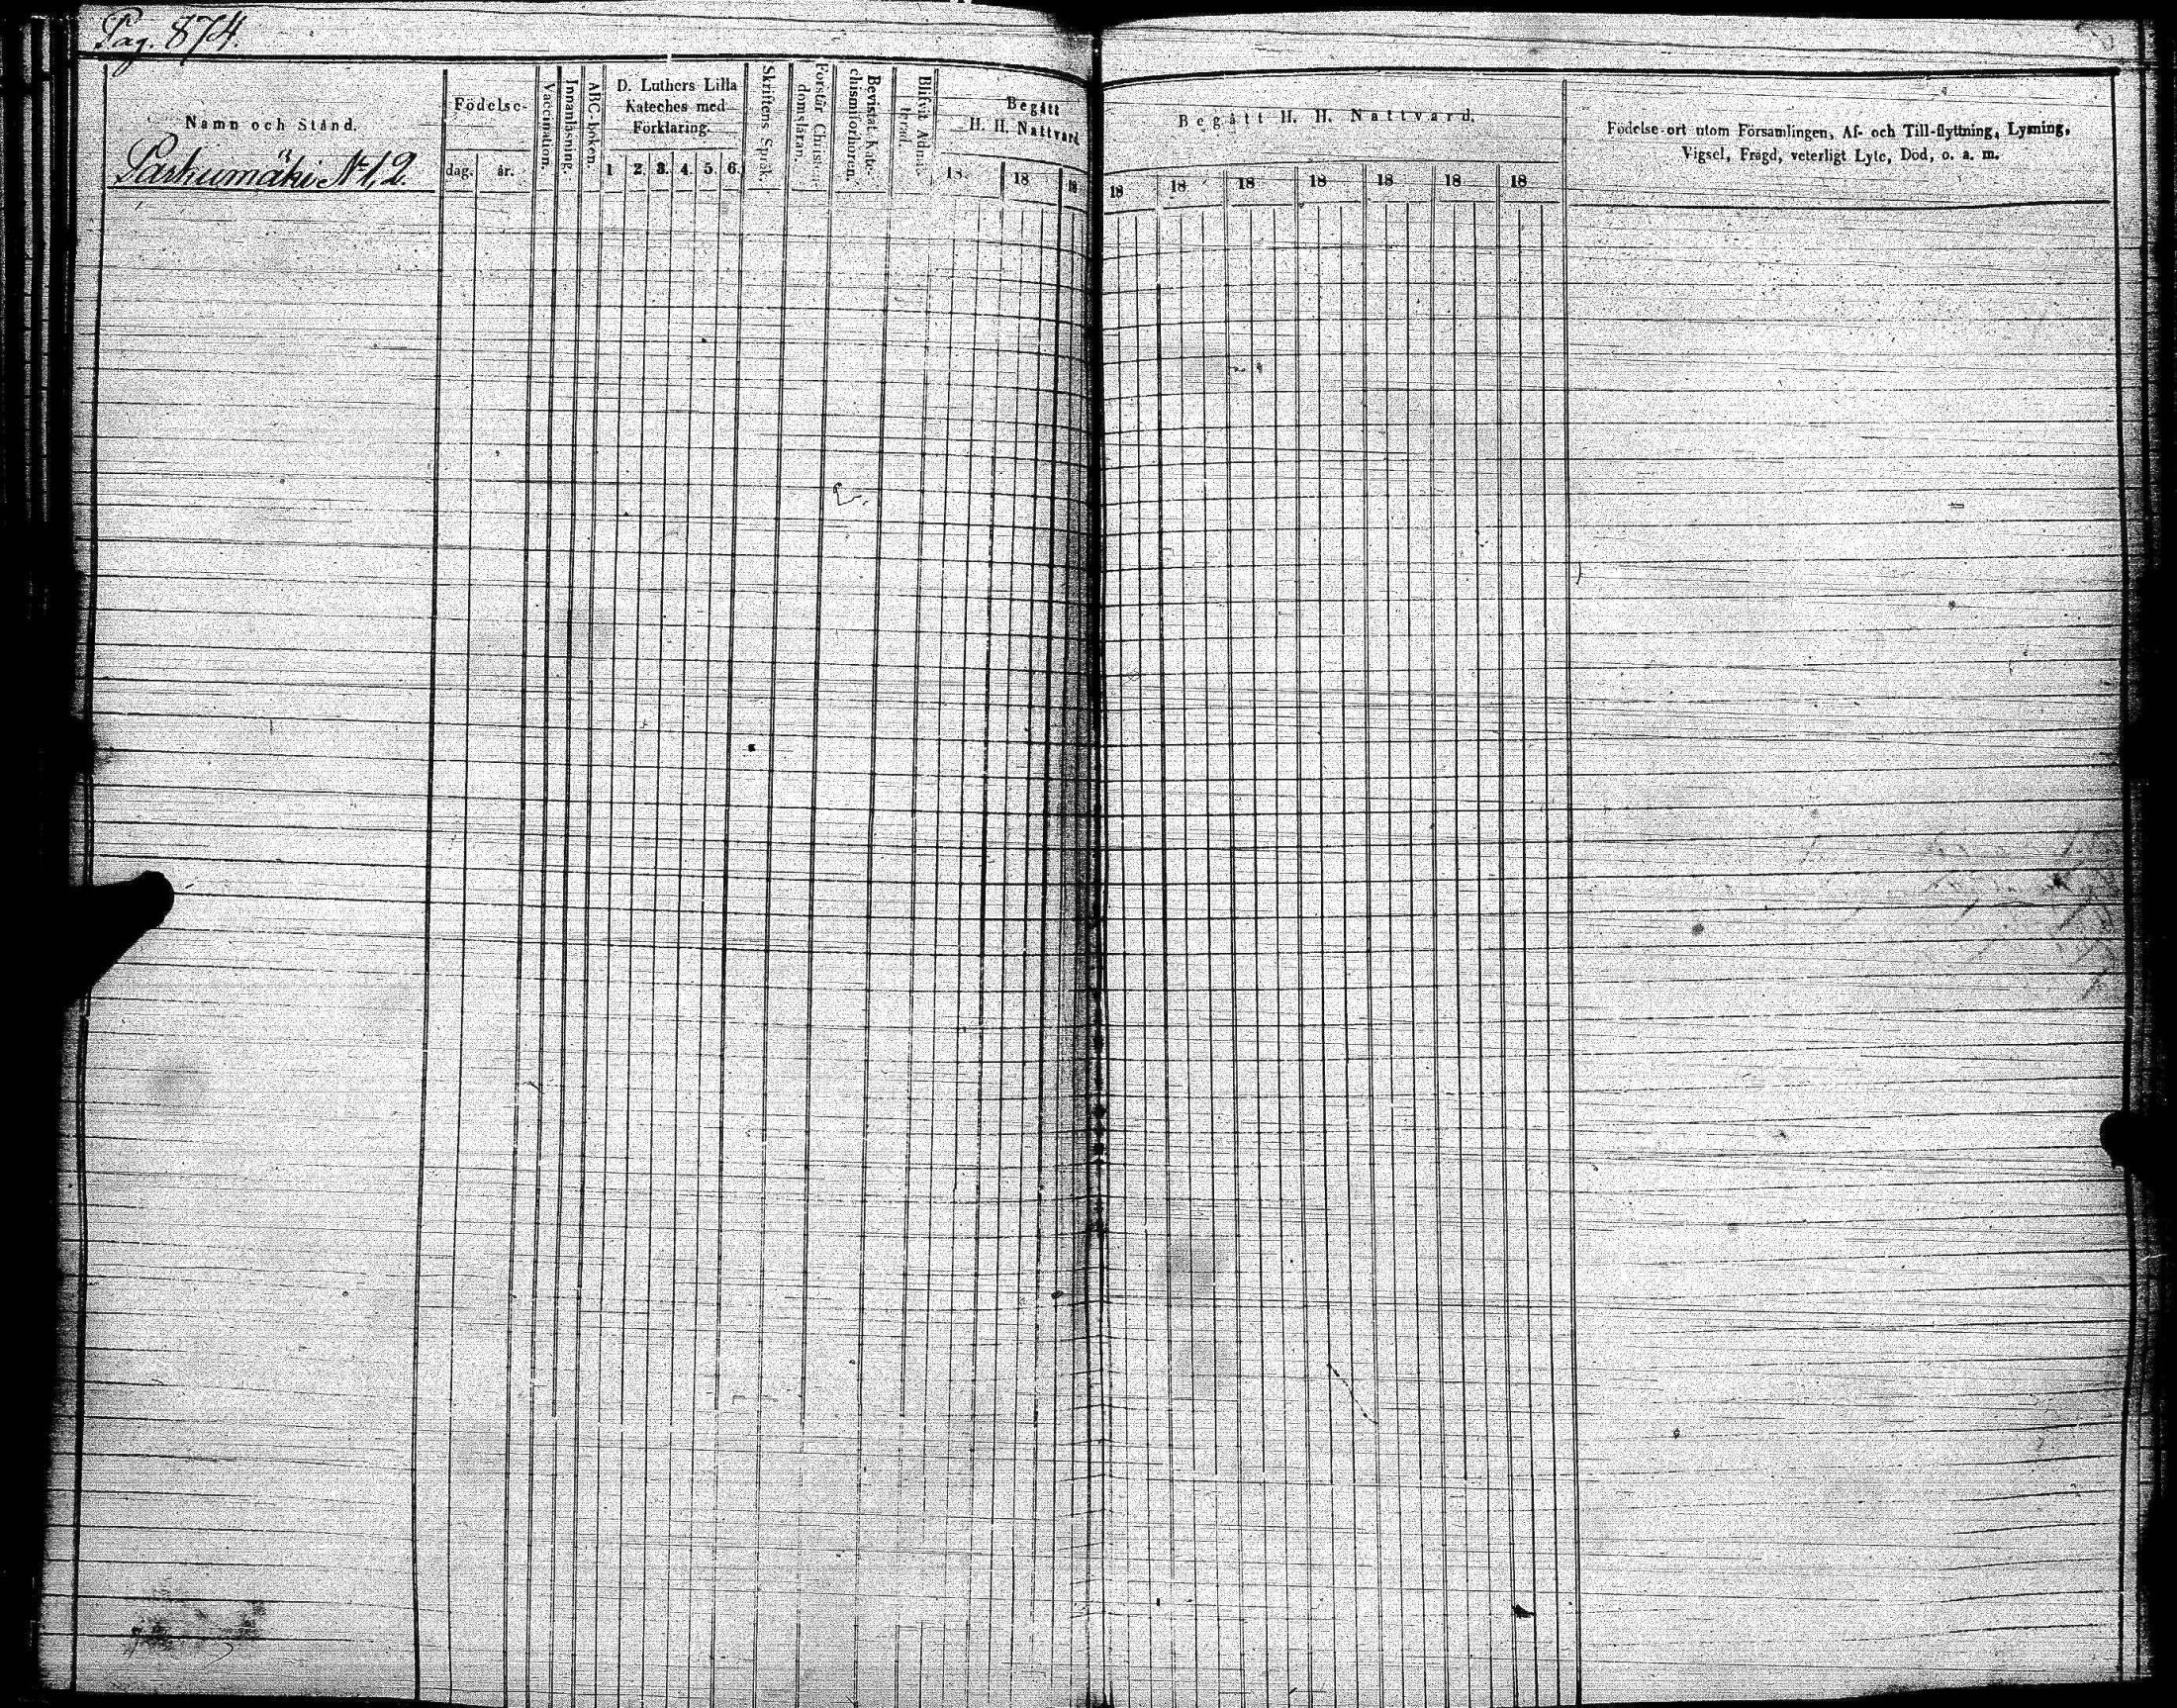 Pag. 874.
Namn och Stånd.
Paskumäki № 1, 2.
Födelse-
dag.
år.
Vaccination.
Innanläsning.
ABC-boken.
D. Luthers Lilla
Kateches med
Förklaring.
1 2. 3. 4. 5. 6.
Skriftens Språk.
Förstår Christen-
domsläran.
Bevistat Kate-
chismiförhören.
Blifvit Admit-
terad.
Begått
H. H. Nattvard
18 18 18
Begått H. H. Nattvard.
18 18 18 18 18 18 18
Födelse-ort utom Församlingen, Af- och Till-flyttning, Lysning,
Vigsel, Frägd, veterligt Lyte, Död, o. a. m.